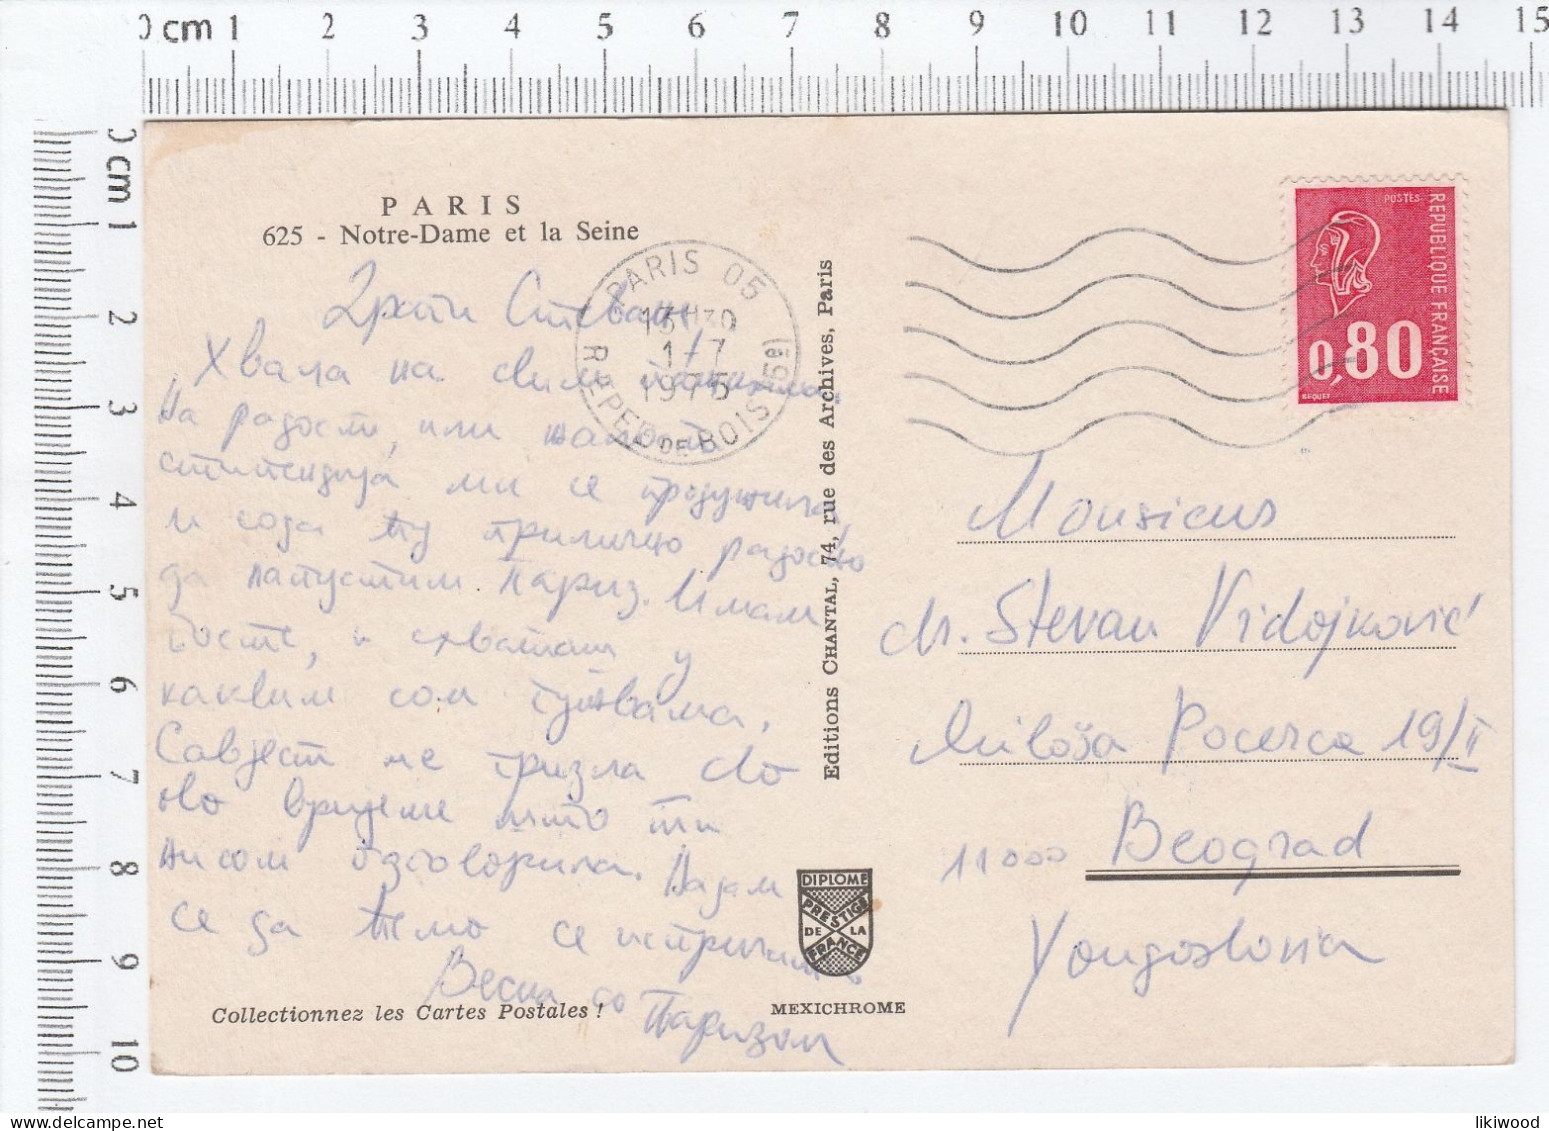 0 cm 1 2 3 4 5 6 7 8 9 10 11 12 13 14 15
0 cm 1 2 3 4 5 6 7 8 9 10
PARIS
625 - Notre-Dame et la Seine
PARIS 05
13H30
1-7
1975
R. REPED DE BOIS (5è)
POSTES
REPUBLIQUE FRANÇAISE
0,80
BEQUET
Драги Стеване,
Хвала на свим
На радост, или жалост
стипендија ми се продужила
и сада ћу прилично радосно
да напустим Париз. Имам
госте, и схваташ у
каквим сам гужвама.
Савјест ме гризла сво
ово вријеме што ти
нисам одговорила. Надам
се да ћемо се испричати
Весна со Паризом
Editions CHANTAL, 74, rue des Archives, Paris
Monsieur
Stevan Vidojković
Miloša Pocerca 19/II
11000 Beograd
Yougoslavia
DIPLOME
PRESTIGE
DE LA
FRANCE
Collectionnez les Cartes Postales !
MEXICHROME
likiwood